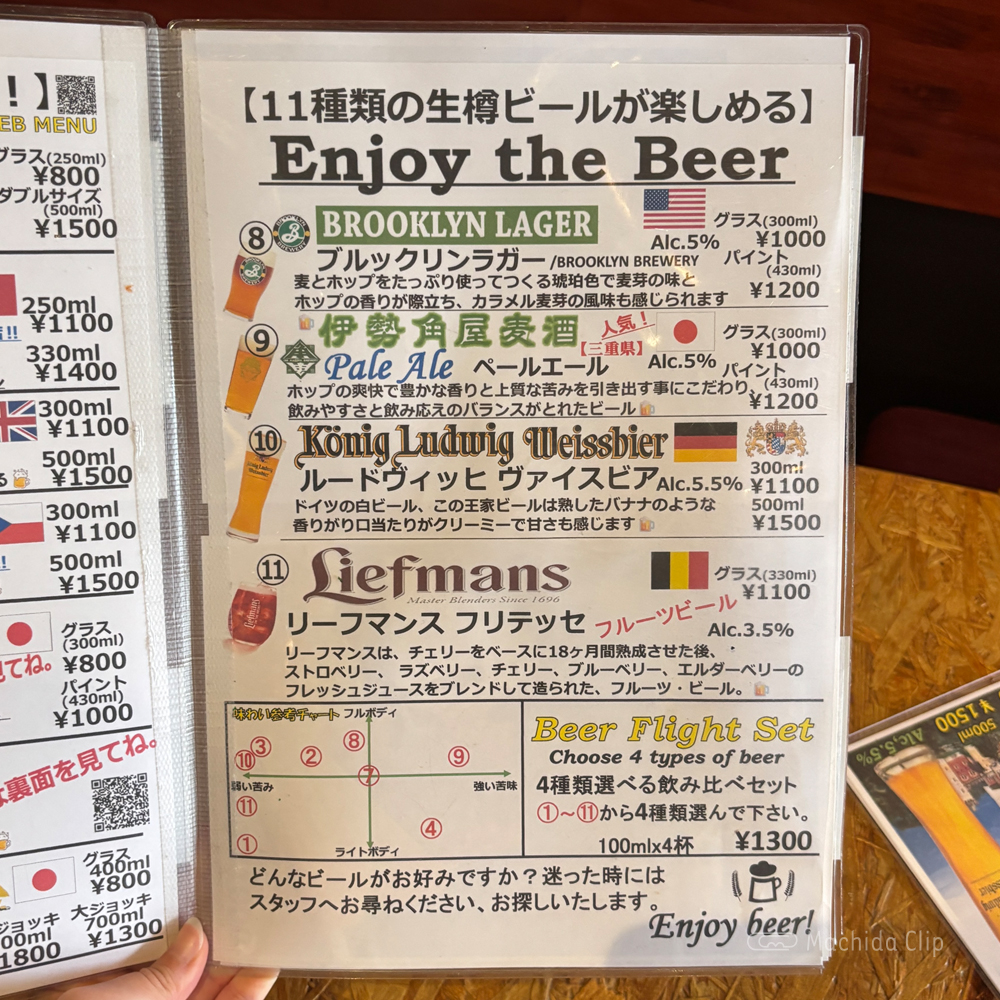 ！】
EB MENU
グラス(250ml)
¥800
ダブルサイズ
(500ml)
¥1500
250ml
¥1100
330ml
¥1400
300ml
¥1100
500ml
¥1500
300ml
¥1100
500ml
¥1500
グラス
(300ml)
¥800
見てね。
パイント
(430ml)
¥1000
裏面を見てね。
グラス
400ml
¥800
ジョッキ
大ジョッキ
700ml
¥1300
【11種類の生樽ビールが楽しめる】
Enjoy the Beer
⑧ BROOKLYN LAGER
グラス(300ml)
Alc.5% ¥1000
ブルックリンラガー/BROOKLYN BREWERY
パイント
(430ml)
¥1200
麦とホップをたっぷり使ってつくる琥珀色で麦芽の味と
ホップの香りが際立ち、カラメル麦芽の風味も感じられます
⑨ 伊勢角屋麦酒 人気！
【三重県】
グラス(300ml)
Pale Ale ペールエール Alc.5% ¥1000
パイント
(430ml)
¥1200
ホップの爽快で豊かな香りと上質な苦みを引き出す事にこだわり、
飲みやすさと飲み応えのバランスがとれたビール
⑩ König Ludwig Weissbier
ルードヴィッヒ ヴァイスビア Alc.5.5%
300ml
¥1100
500ml
¥1500
ドイツの白ビール、この王家ビールは熟したバナナのような
香りがり口当たりがクリーミーで甘さも感じます
⑪ Liefmans
Master Blenders Since 1696
グラス(330ml)
¥1100
リーフマンス フリテッセ フルーツビール Alc.3.5%
リーフマンスは、チェリーをベースに18ヶ月間熟成させた後、
ストロベリー、ラズベリー、チェリー、ブルーベリー、エルダーベリーの
フレッシュジュースをブレンドして造られた、フルーツ・ビール。
味わい参考チャート フルボディ
③ ② ⑧ ⑨
⑩ ⑦
弱い苦み 強い苦味
⑪
④
①
ライトボディ
Beer Flight Set
Choose 4 types of beer
4種類選べる飲み比べセット
①～⑪から4種類選んで下さい。
100mlx4杯 ¥1300
どんなビールがお好みですか？迷った時には
スタッフへお尋ねください、お探しいたします。
Enjoy beer!
500ml
¥1500
Alc.5.5%
Machida Clip